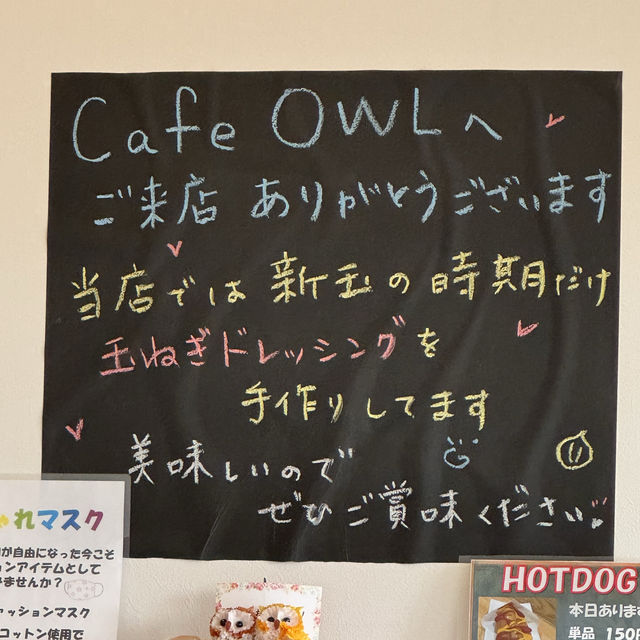 Cafe OWLへ
ご来店 ありがとうございます
当店では 新玉の時期だけ
玉ねぎドレッシングを
手作りしてます
美味しいので
ぜひご賞味ください
れマスク
が自由になった今こそ
ンアイテムとして
ませんか?
ァッションマスク
コットン使用で
HOTDOG
本日あります
単品 150